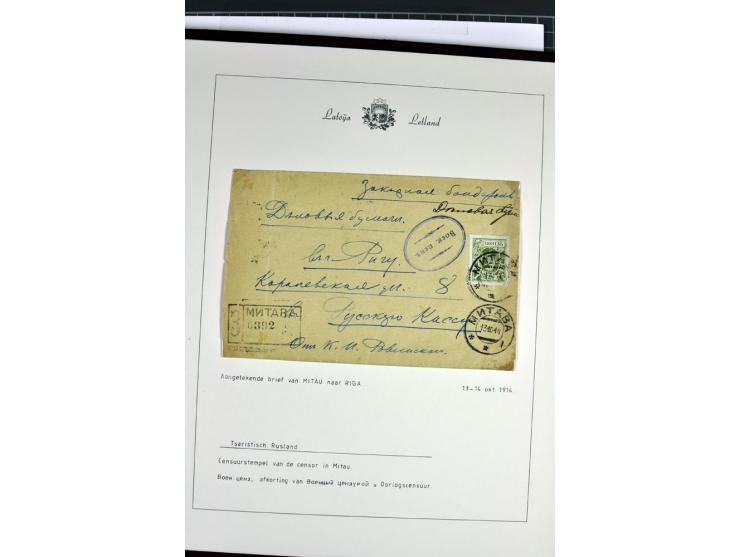 Latvija Letland
Заказная бандероль
Деловыя бумаги.
Воен. ценз.
въ Ригу.
Королевская ул. 8
МИТАВА
З 0392
Русскую Кассу
МИТАВА
Отъ К. И.
Aangetekende brief van MITAU naar RIGA. 13-14 okt 1914.
Tsaristisch Rusland.
Censuurstempel van de censor in Mitau.
Воен ценз, afkorting van Военный цензурой = Oorlogscensuur.